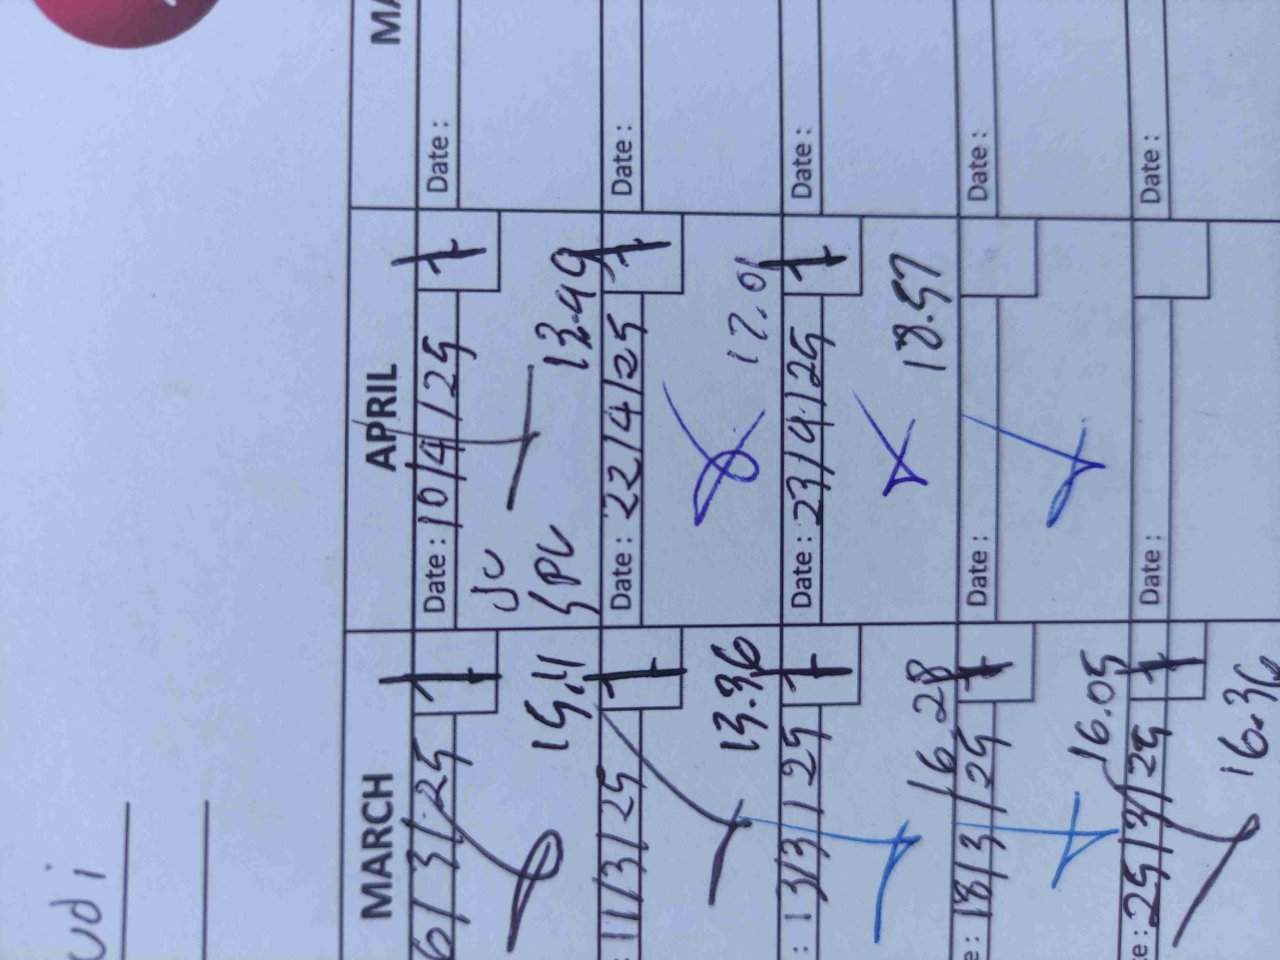 udi
MARCH
6/3/25
1
15.11
11/3/25
1
13.36
: 13/3/25
1
16.28
e: 18/3/25
1
16.05
te: 25/3/25
1
16.36
APRIL
Date: 10/4/25
1
JC
SPC
13.49
Date: 22/4/25
1
17.01
Date: 23/4/25
1
18.57
Date:
Date:
MA
Date:
Date:
Date:
Date:
Date: